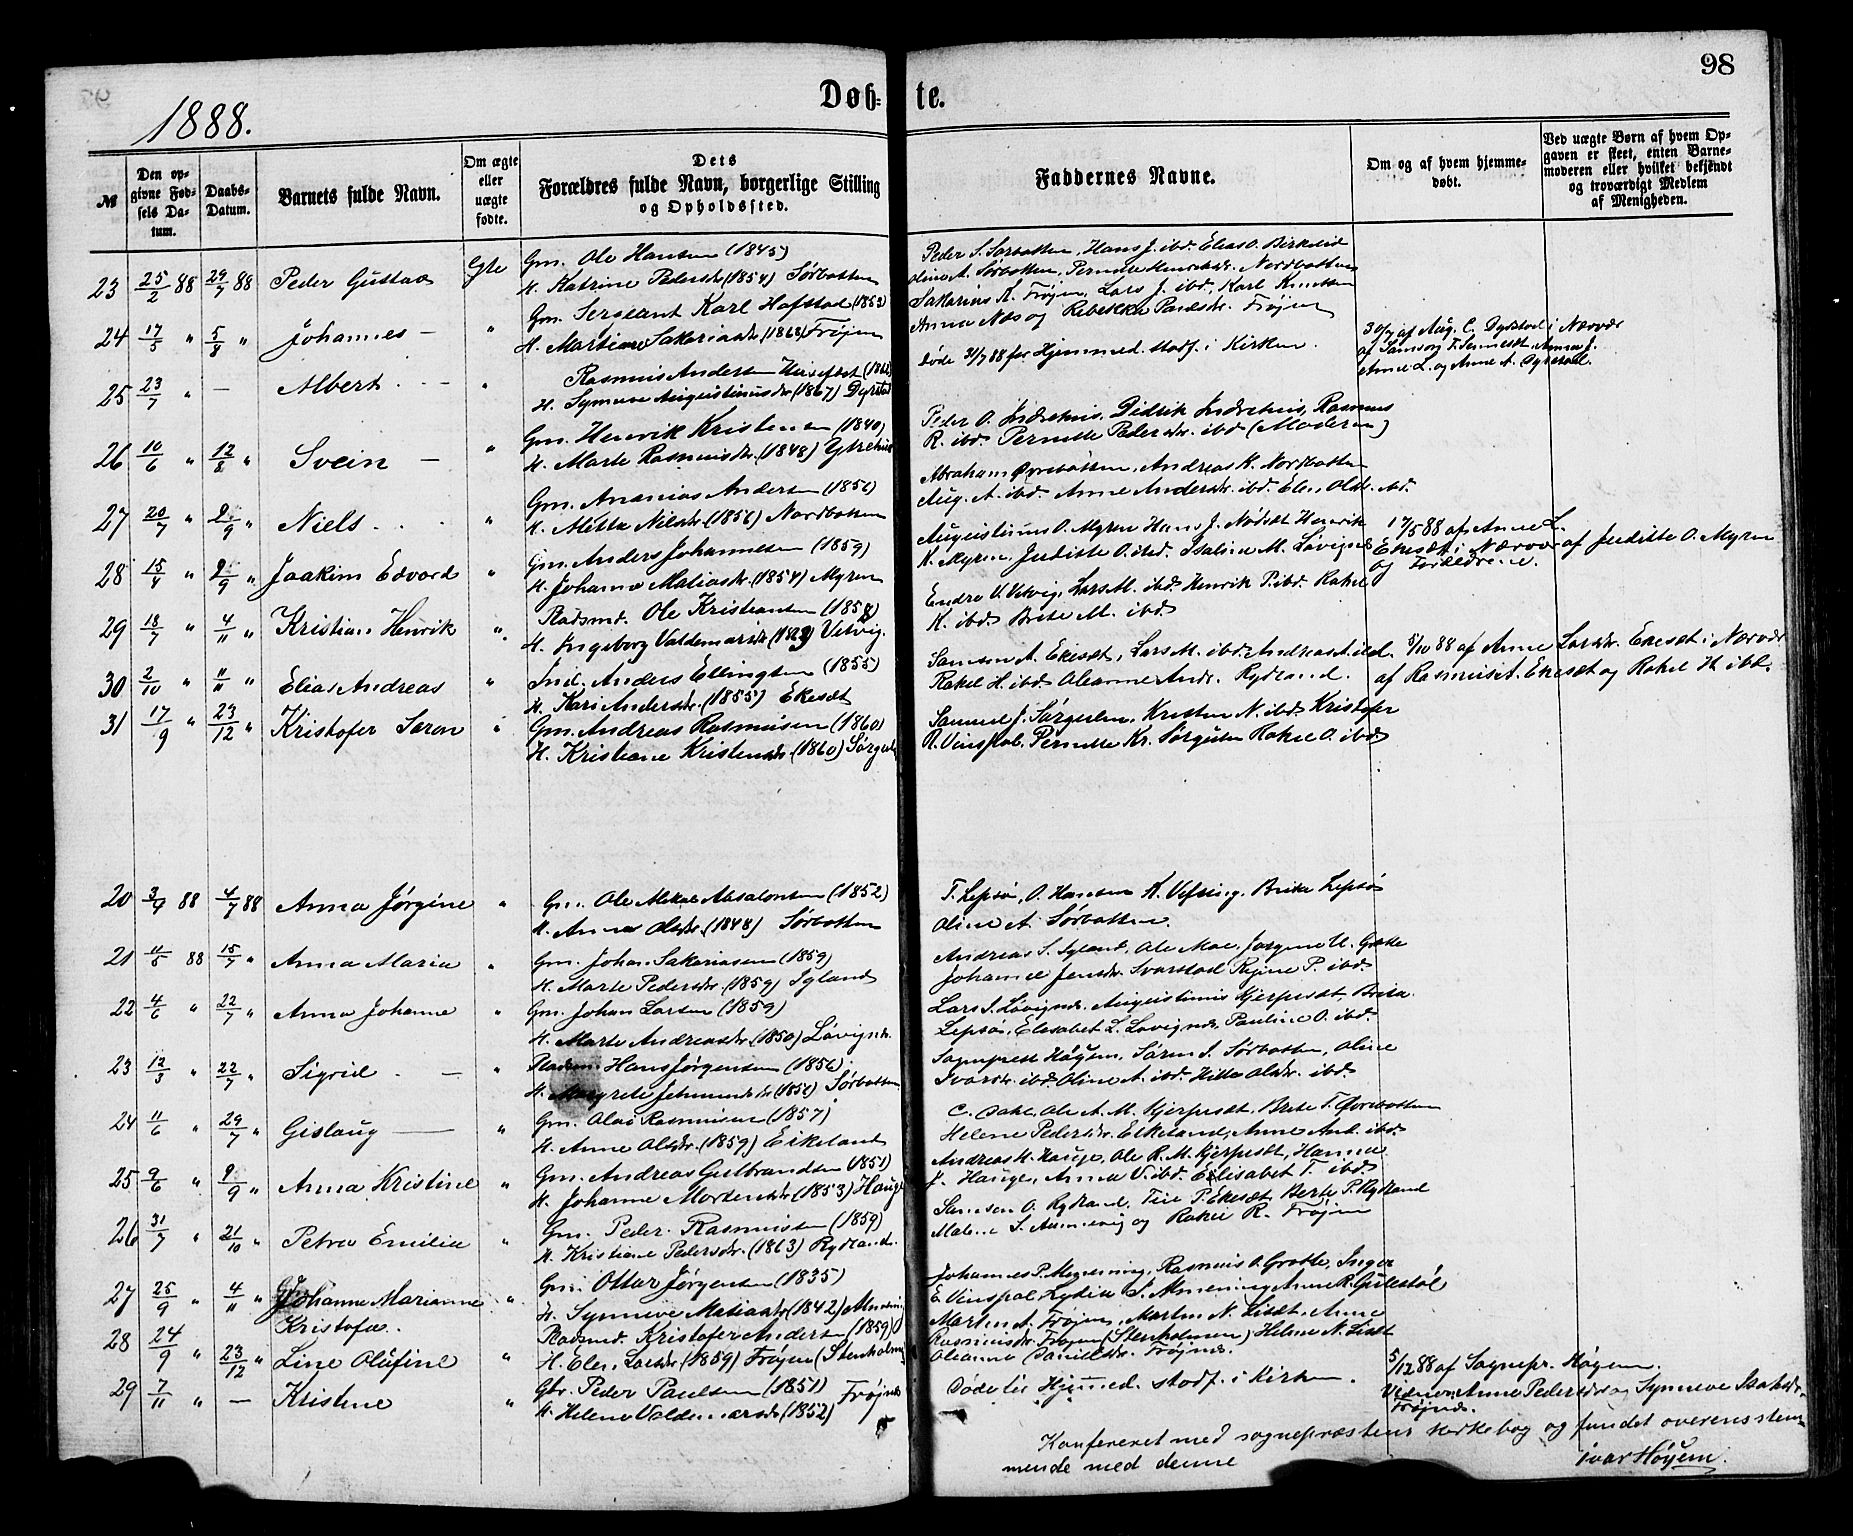 98
Døb- te.
1888.
№
Den opgivne Fødsels Datum.
Daabs-Datum.
Barnets fulde Navn.
Om ægte eller uægte fødte.
Dets Forældres fulde Navn, borgerlige Stilling og Opholdssted.
Faddernes Navne.
Om og af hvem hjemmedøbt.
Ved uægte Børn af hvem Opgaven er skeet, enten Barnemoderen eller hvilket bekjendt og troværdigt Medlem af Menigheden.
23 25/2 88 29/7 88 Peder Gustav Egte Gm. Ole Hansen (1845)
H. Katrine Pedersdr (1854) Sørbotten
Peder S. Sørbotten, Hans J. ibd. Elias O. Birkeland
Oline A. Sørbotten, Pernille Nordbotten
24 17/5 " 5/8 " Johannes — " Gm. Sergeant Karl Hofstad (1853)
H. Martine Sakariasdr (1863) Frøjen
Sakarias K. Frøjen, Lars J. ibd., Karl Knutsen
Anna Næs og Rebekka Paulsdr. Frøjen
25 23/7 " — Albert — " Rasmus Andersen
H. Synneve Augustinusdr (1867) Dyrstad
Døde 31/7 88 før Hjemmed. stadf. i Kirken.
30/7 af Aug. C. Dyrstad i Nærvær
af Samson T.
Anne L. og Anne A. Dyrstad.
26 10/6 " 12/8 " Svein — " Gm. Henrik Kristensen (1840)
H. Marte Rasmusdr. (1848) Ytrehus
Peder O. Indrehus, Didrik Indrehus, Rasmus
R. ibd. Pernille Pedersdr. ibd (Moderen)
27 20/7 " 2/9 " Niels. " Gm. Ananias Andersen (1856)
H. Mette Nilsdr (1856) Nordbotten
Abraham Øvrebotten, Andreas K. Nordbotten
Aug. A. ibd. Anne Andersdr. ibd. Elen Olsdr. ibd.
28 15/4 " 2/9 " Joakim Edvard " Gm. Anders Johannesen (1859)
H. Johanne Matiasdr. (1854) Myren
Augustinus O. Myren Hans J. Nødset Henrik
K. Myren, Juditte O. ibd. Isaline M. Løvignes
17/5 88 af Anne L.
Ekesæt i Nærvær af Juditte O. Myren
og Forældrene.
29 18/7 " 4/11 " Kristian Henrik " Pladsmd. Ole Kristiansen (1858)
H. Ingeborg Valdemarsdr. Vetvig.
Endre U. Vetvig, Lars M. ibd. Henrik P. ibd. Rakel
K. ibd. Brite M. ibd.
30 2/10 " 11/11 " Elias Andreas " Ind. Anders Ellingsen (1855)
H. Kari Andersdr. (1855) Ekesæt
Samson A. Ekesæt, Lars M. ibd. Andreas A. ibd.
Rakel H. ibd. Oleanne Andr. Rydland.
5/10 88 af Anne Larsdr. Ekesæt i Nærvær
af Rasmus A. Ekesæt og Rakel H. ibd.
31 17/9 " 23/12 " Kristofer Søren " Gm. Andreas Rasmussen (1860)
H. Kristiane Kristensdr. (1860) Sørgulen
Samuel J. Sørgulen, Kristen N. ibd. Kristofer
R. Vinspol, Pernille Kr. Sørgulen Rakel O. ibd.
20 3/4 88 4/7 88 Anna Jørgine " Gm. Ole Mikal Absalonsen (1852)
H. Anne Olsdr. (1848) Sørbotten
T. Lepsø, O. Hansen K. Vefring, Brita Lepsø
Oline A. Sørbotten.
21 11/5 88 15/7 " Anna Maria " Gm. Johan Sakariasen (1859)
H. Marte Pedersdr. (1859) Igland
Andreas S. Igland, Ole Moe, Jørgine U. Grotte
Johanne Jensdr. Svarstad Regine P. ibd.
22 4/6 " 22/7 " Anna Johanne " Gm. Johan Larsen (1859)
H. Marte Andreasdr. (1850) Løvignes.
Lars I. Løvignes. Augustinus Kjerpesæt, Brita
Lepsø, Elisabet L. Løvignes, Pauline O. ibd.
23 12/3 " 22/7 " Sigrid — " Pladsm. Hans Jørgensen (1856)
H. Margrete Jetmundsdr (1856) Sørbotten
Sogneprest Høyem, Søren I. Sørbotten, Oline
Ivarsdr. ibd. Oline A. ibd. Hilla Olsdr. ibd.
24 11/6 " 29/7 " Gislaug — " Gm. Olai Rasmussen (1857)
H. Anne Olsdr. (1859) Eikeland
C. Dahl, Ole A. M. Kjerpesæt. Brite T. Øvrebotten
Helene Pedersdr. Eikeland, Anne Ant. ibd.
25 9/6 " 2/9 " Anna Kristine " Gm. Andreas Gulbrandsen (1851)
H. Johanne Mortensdr. (1853) Hauge
Andreas H. Hauge, Ole R. M. Kjerpesæt, Hanna
J. Hauge, Anna V. ibd. Elisabet T. ibd.
26 31/7 " 21/10 " Petra Emilie " Gm. Peder Rasmussen (1859)
H. Kristiane Pedersdr. (1863) Rydland.
Samson O. Rydland, P. Ekesæt Berte P. Rydland
Malene S. Anmenvig og Rakel R. Frøjen
27 25/9 " 4/11 " Johanne Marianne " Gm. Ottar Jørgensen (1835)
Kristofa. H. Synneve Matiasdr (1842)
Johannes P. Rasmus O. Grotte, Inger
E. Vinspol Lydia S. Anne R. Gulestøl
28 24/9 " 23/12 " Line Olufine " Pladsmd. Kristofer Andersen (1859)
H. Elen Larsdr. (1859) Frøjen (Stenholmen)
Martin A. Frøjen, Martin N. Liset, Anne
Rasmusdr. Frøjen (Stenholmen) Helene N. Liset
Oleanne Danielsdr. Frøjnes.
29 7/11 " — Kristine " Gbr. Peder Paulsen (1851) Frøjnes
H. Helene Valdemarsdr (1852)
Døde før Hjemmed. stadf. i Kirken.
5/12 88 af Sognepr. Høyem.
Anne Pedersdr og Synneve
Frøjnes.
Konfereret med sognepræstens kirkebog og fundet overensstem-
mende med denne
Ivar Høyem.